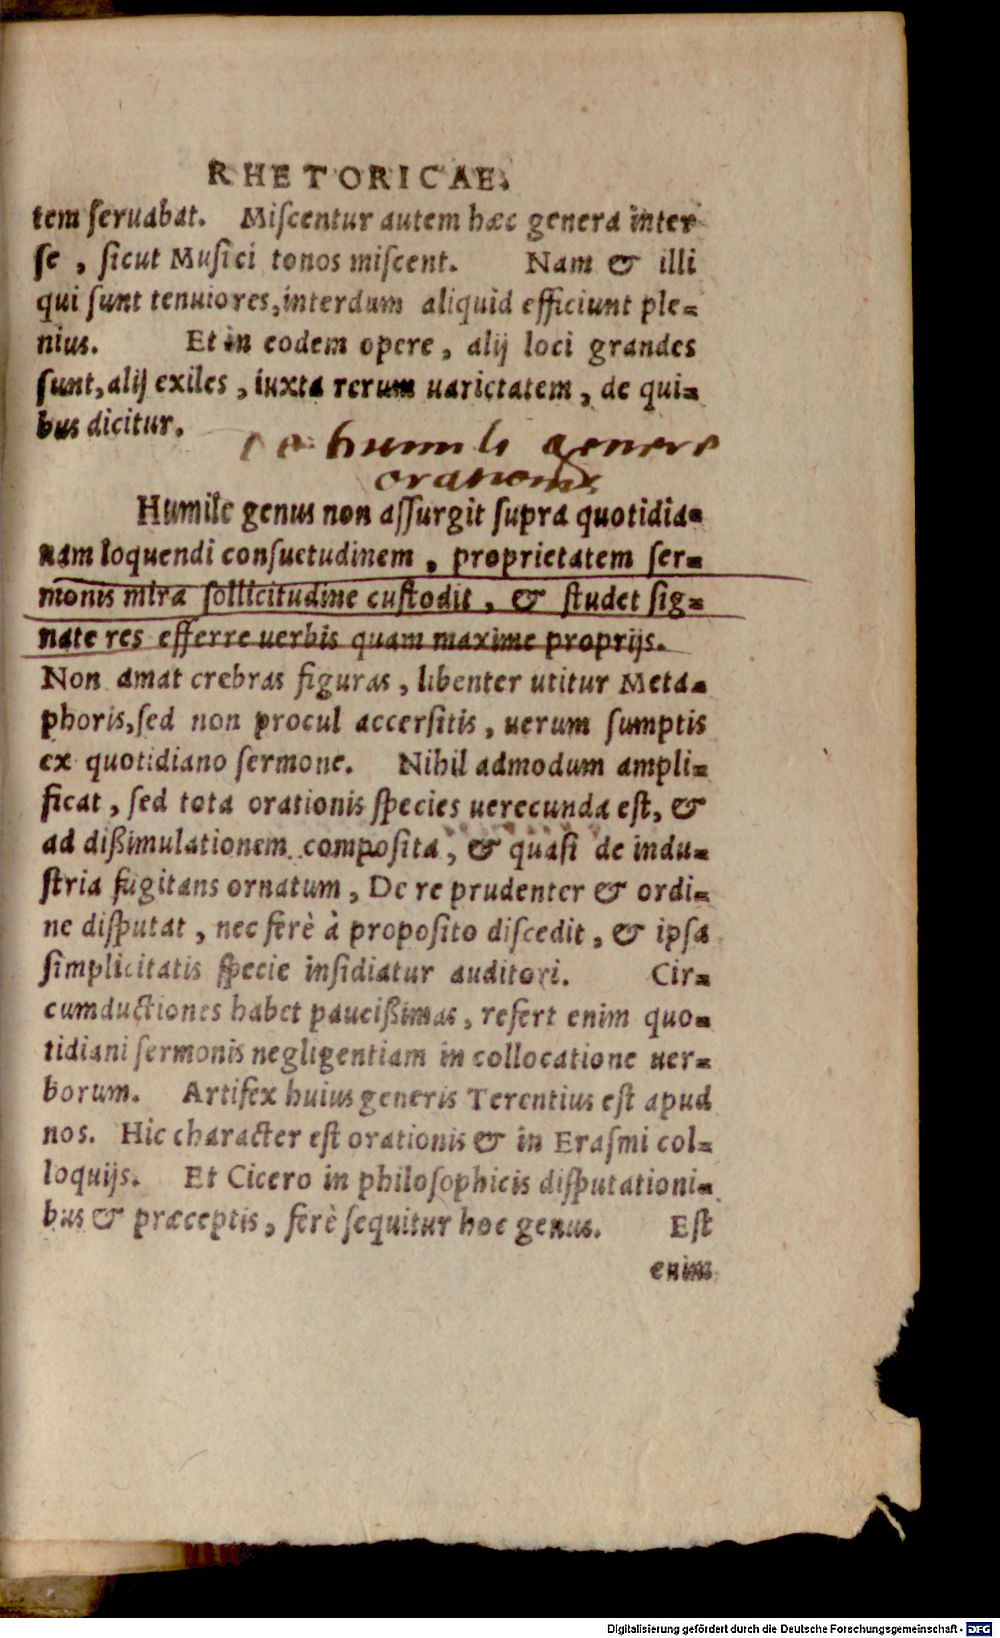 RHETORICAE.
tem ſeruabat. Miſcentur autem hæc genera inter
ſe , ſicut Muſici tonos miſcent. Nam & illi
qui ſunt tenuiores, interdum aliquid efficiunt ple=
nius. Et in eodem opere , alij loci grandes
ſunt, alij exiles , iuxta rerum uarietatem , de qui=
bus dicitur.
De humili genere
orationis
Humile genus non aſſurgit ſupra quotidia=
nam loquendi conſuetudinem , proprietatem ſer=
monis mira ſollicitudine cuſtodit , & ſtudet ſig=
nate res efferre uerbis quam maxime proprijs.
Non amat crebras figuras , libenter utitur Meta=
phoris, ſed non procul accerſitis , uerum ſumptis
ex quotidiano ſermone. Nihil admodum ampli=
ficat , ſed tota orationis ſpecies uerecunda eſt, &
ad dißimulationem compoſita , & quaſi de indu=
ſtria fugitans ornatum , De re prudenter & ordi=
ne diſputat , nec ferè à propoſito diſcedit , & ipſa
ſimplicitatis ſpecie inſidiatur auditori. Cir=
cumductiones habet paucißimas , refert enim quo=
tidiani ſermonis negligentiam in collocatione uer=
borum. Artifex huius generis Terentius eſt apud
nos. Hic character eſt orationis & in Eraſmi col=
loquijs. Et Cicero in philoſophicis diſputationi=
bus & præceptis , ferè ſequitur hoc genus. Eſt
enim
Digitalisierung gefördert durch die Deutsche Forschungsgemeinschaft - DFG